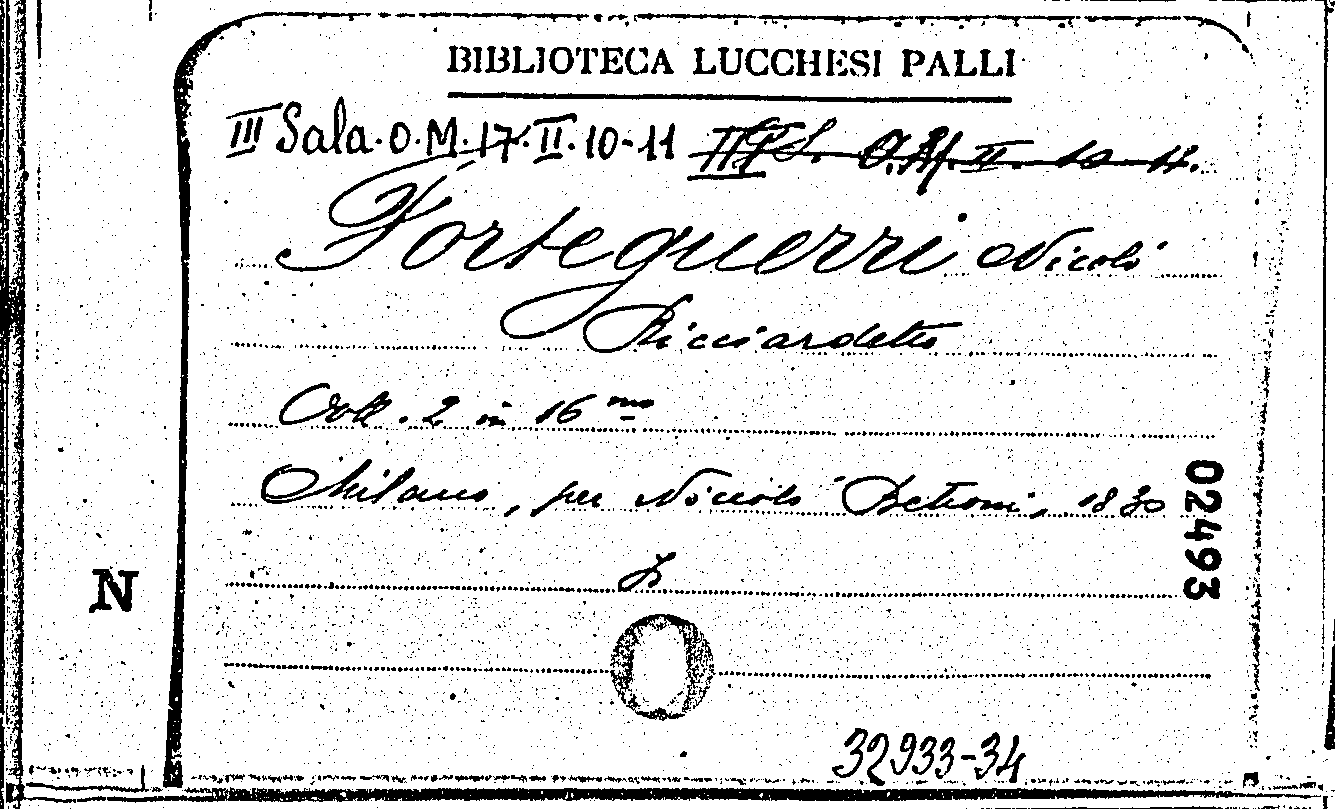 BIBLIOTECA LUCCHESI PALLI
III Sala. O. M. 17. II. 10-11 III S. O. M. II. 10-12.
Forteguerri Nicolò
Ricciardetto
Voll. 2 in 16mo
Milano, per Niccolò Bettoni, 1830
02493
N
32933-34